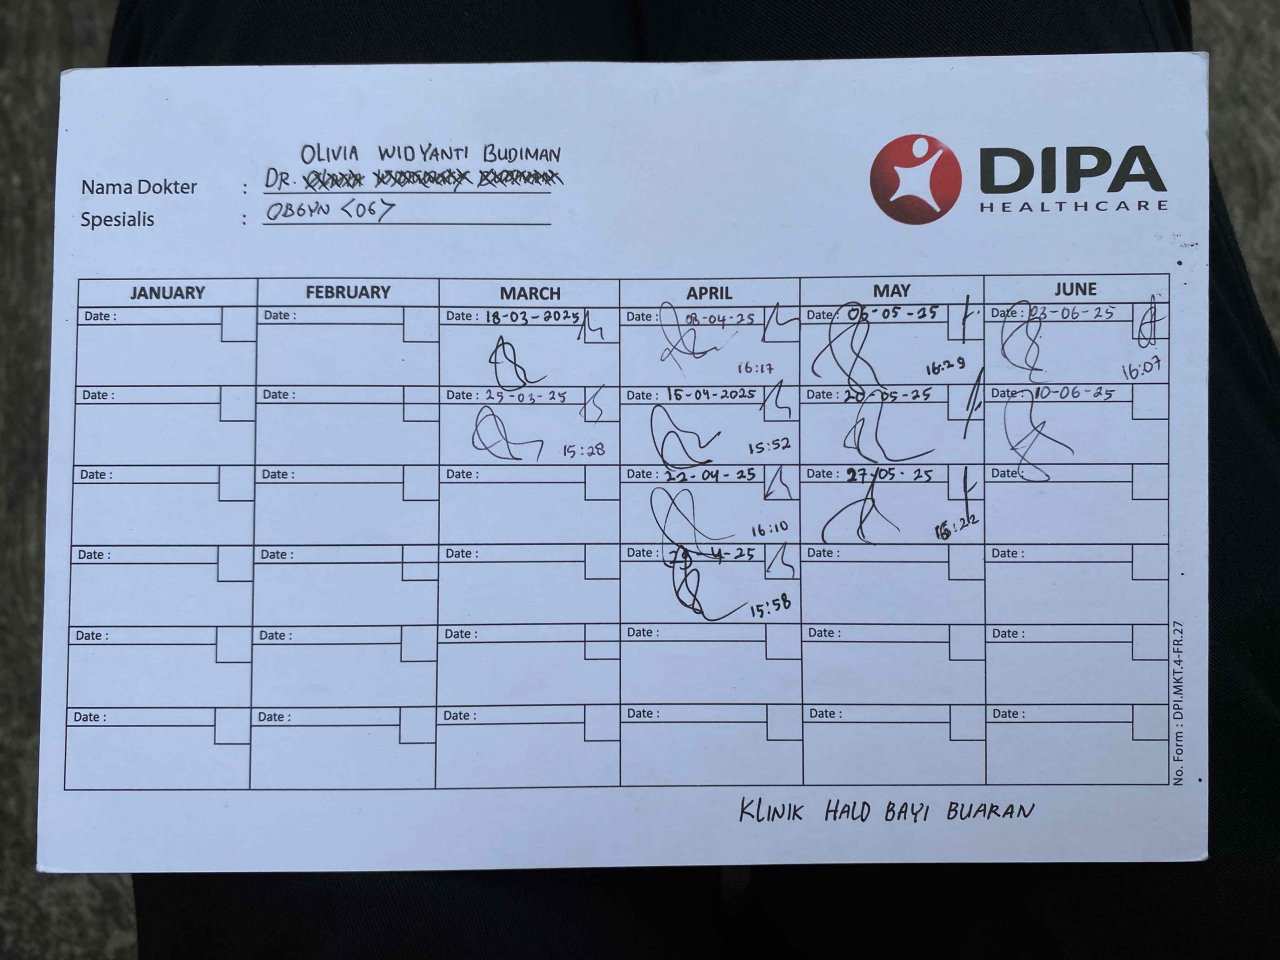 OLIVIA WIDYANTI BUDIMAN
Nama Dokter : DR.
Spesialis : OBGYN <OG>
DIPA
HEALTHCARE
JANUARY FEBRUARY MARCH APRIL MAY JUNE
Date : Date : Date : 18-03-2025 Date : 08-04-25 Date : 06-05-25 Date : 03-06-25
16:17 16:29 16:07
Date : Date : Date : 25-03-25 Date : 15-04-2025 Date : 20-05-25 Date : 10-06-25
15:28 15:52
Date : Date : Date : Date : 22-04-25 Date : 27-05-25 Date :
16:10 16:22
Date : Date : Date : Date : 29-4-25 Date : Date :
15:58
Date : Date : Date : Date : Date : Date :
Date : Date : Date : Date : Date : Date :
No. Form : DPI.MKT.4-FR.27
KLINIK HALO BAYI BUARAN